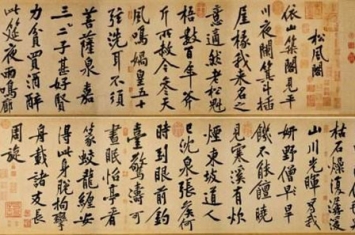 松風閣
依山築閣見平
川夜闌箕斗插
屋椽我来名之
意適然老松魁
梧數百年斧
斤所赦今參天
風鳴媧皇五十
弦洗耳不須
菩薩泉嘉
三二子甚好賢
力貧買酒醉
此筵夜雨鳴廊
枯石燥復潺湲
山川光暉為我
妍野僧早旱
饑不能饘曉
見寒溪有炊
煙東坡道人
已沈泉張侯何
時到眼前釣
臺驚濤可
晝眠怡亭看
篆蛟龍纏安
得此身脫拘攣
舟載諸友長
周旋